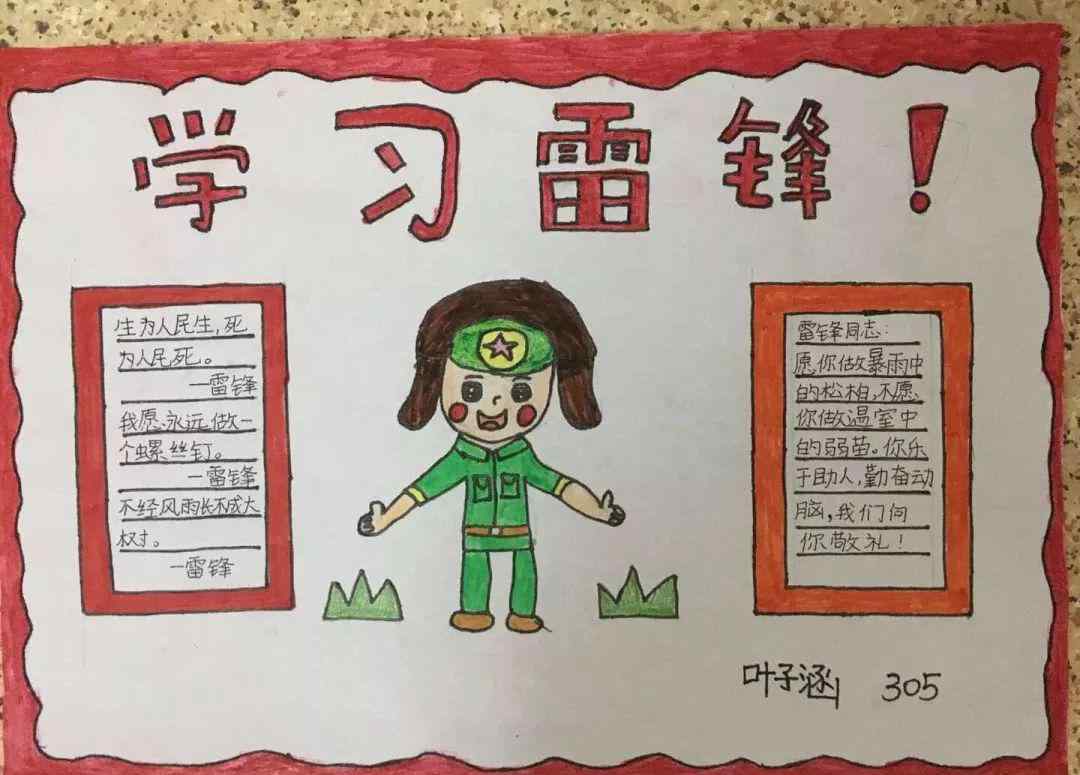 学习雷锋！
生为人民生，死
为人民死。
—雷锋
我愿永远做一
个螺丝钉。
—雷锋
不经风雨长不成大
树。
—雷锋
雷锋同志：
愿你做暴雨中
的松柏，不愿
你做温室中
的弱苗。你乐
于助人，勤奋动
脑，我们向
你敬礼！
叶子涵 305